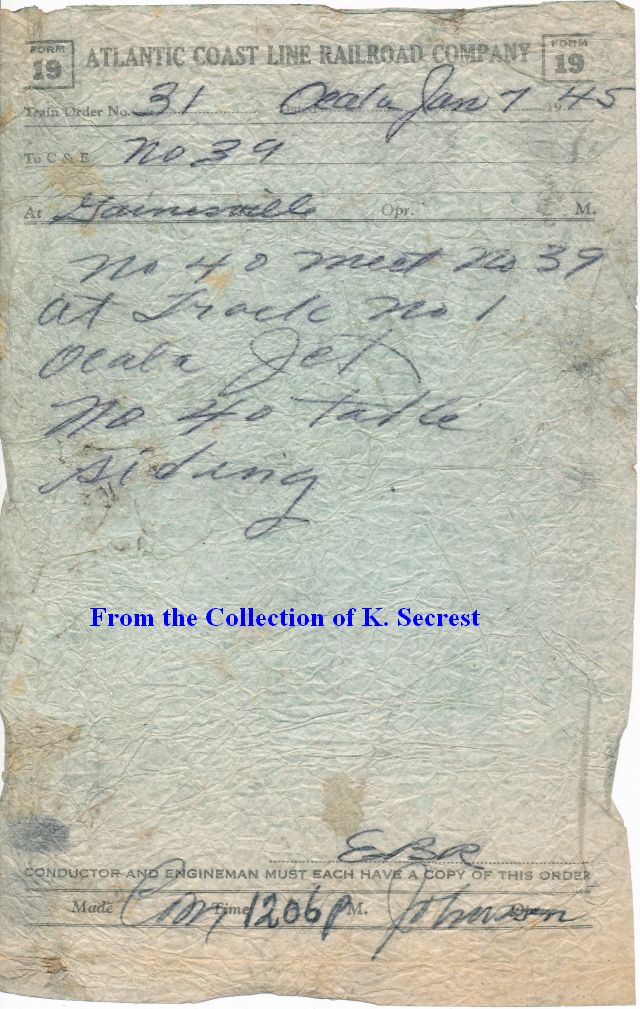 FORM 19 ATLANTIC COAST LINE RAILROAD COMPANY FORM 19
Train Order No. 31 Ocala Jan 7 1945
To C & E No 39
At Gainesville Opr. M.
No 40 meet No 39
at Track No 1
Ocala Jct
No 40 take
siding
From the Collection of K. Secrest
EBR
CONDUCTOR AND ENGINEMAN MUST EACH HAVE A COPY OF THIS ORDER
Made Com Time 1206 P M. Johnson Opr.